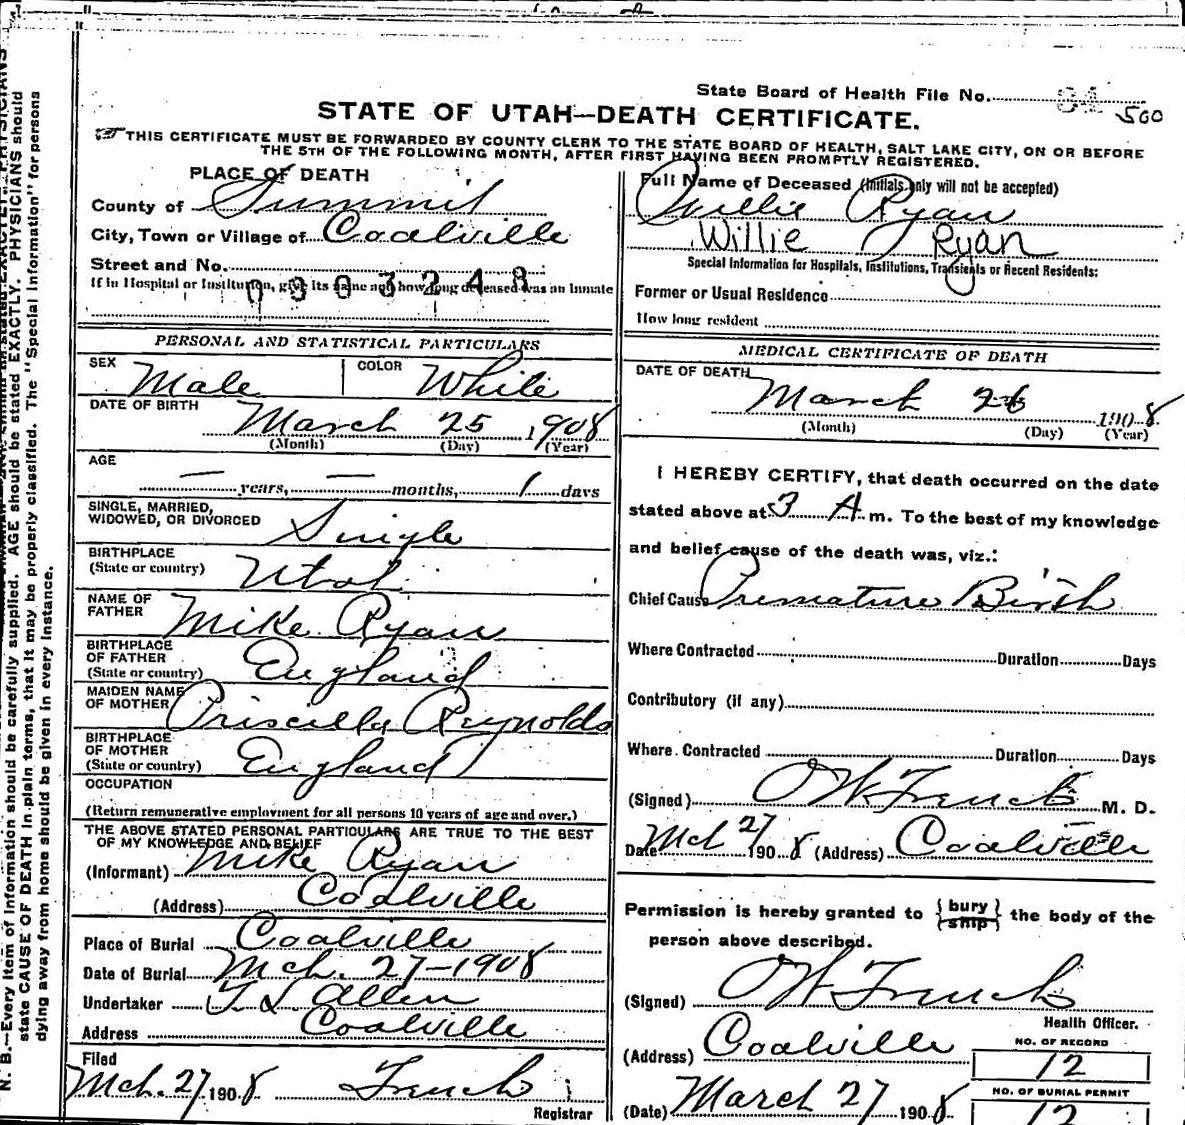 State Board of Health File No. 500
STATE OF UTAH—DEATH CERTIFICATE.
THIS CERTIFICATE MUST BE FORWARDED BY COUNTY CLERK TO THE STATE BOARD OF HEALTH, SALT LAKE CITY, ON OR BEFORE
THE 5TH OF THE FOLLOWING MONTH, AFTER FIRST HAVING BEEN PROMPTLY REGISTERED.
PLACE OF DEATH
County of Summit
City, Town or Village of Coalville
Street and No.
If in Hospital or Institution, give its name and how long deceased was an inmate
0803248
PERSONAL AND STATISTICAL PARTICULARS
SEX Male COLOR White
DATE OF BIRTH
March 25 1908
(Month) (Day) (Year)
AGE
— years, — months, 1 days
SINGLE, MARRIED,
WIDOWED, OR DIVORCED Single
BIRTHPLACE
(State or country) Utah
NAME OF
FATHER Mike Ryan
BIRTHPLACE
OF FATHER
(State or country) England
MAIDEN NAME
OF MOTHER Priscilla Reynolds
BIRTHPLACE
OF MOTHER
(State or country) England
OCCUPATION
(Return remunerative employment for all persons 10 years of age and over.)
THE ABOVE STATED PERSONAL PARTICULARS ARE TRUE TO THE BEST
OF MY KNOWLEDGE AND BELIEF
(Informant) Mike Ryan
(Address) Coalville
Place of Burial Coalville
Date of Burial Mch. 27-1908
Undertaker Allen
Address Coalville
Filed
Mch. 27 1908 French
Registrar
Full Name of Deceased (Initials only will not be accepted)
Willie Ryan
Willie Ryan
Special Information for Hospitals, Institutions, Transients or Recent Residents:
Former or Usual Residence
How long resident
MEDICAL CERTIFICATE OF DEATH
DATE OF DEATH
March 26 1908
(Month) (Day) (Year)
I HEREBY CERTIFY, that death occurred on the date
stated above at 3 A m. To the best of my knowledge
and belief cause of the death was, viz.:
Chief Cause Premature Birth
Where Contracted Duration Days
Contributory (if any)
Where Contracted Duration Days
(Signed) French M. D.
Date Mch 27 1908 (Address) Coalville
Permission is hereby granted to { bury ship } the body of the
person above described.
(Signed) French
Health Officer.
(Address) Coalville
(Date) March 27 1908
NO. OF RECORD
12
NO. OF BURIAL PERMIT
12
N. B.—Every item of information should be carefully supplied. AGE should be stated EXACTLY. PHYSICIANS should
state CAUSE OF DEATH in plain terms, that it may be properly classified. The "Special Information" for persons
dying away from home should be given in every instance.